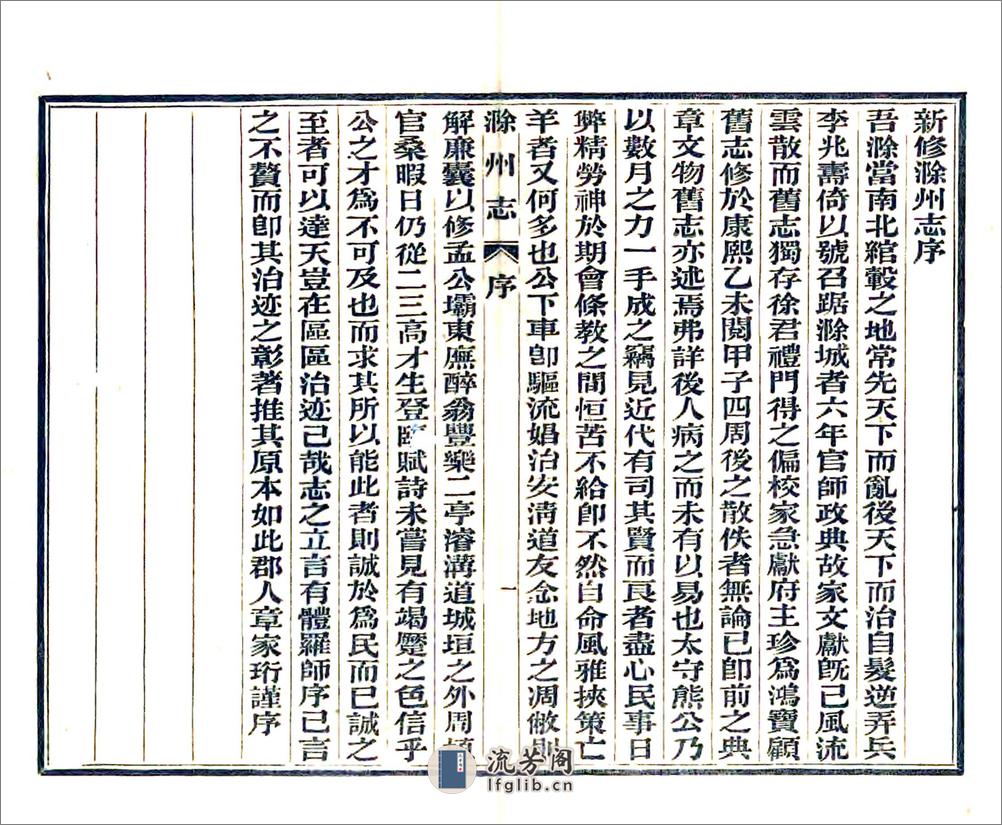 新修滁州志序
吾滁當南北綰轂之地常先天下而亂後天下而治自髮逆弄兵
李兆壽倚以號召踞滁城者六年官師政典故家文獻旣已風流
雲散而舊志獨存徐君禮門得之偏校家急獻府主珍爲鴻寶顧
舊志修於康熙乙未閱甲子四周後之散佚者無論已卽前之典
章文物舊志亦述焉弗詳後人病之而未有以易也太守熊公乃
以數月之力一手成之竊見近代有司其賢而良者盡心民事日
弊精勞神於期會條教之間恒苦不給卽不然自命風雅挾策亡
羊者又何多也公下車卽驅流娼治安淸道友念地方之凋敝則
滁州志 序 一
解廉囊以修孟公壩東廡醉翁豐樂二亭濬溝道城垣之外周
官桑暇日仍從二三高才生登臨賦詩未嘗見有竭蹷之色信乎
公之才爲不可及也而求其所以能此者則誠於爲民而已誠之
至者可以達天豈在區區治迹已哉志之立言有體羅師序已言
之不贅而卽其治迹之彰著推其原本如此郡人章家珩謹序
流芳阁
lfglib.cn